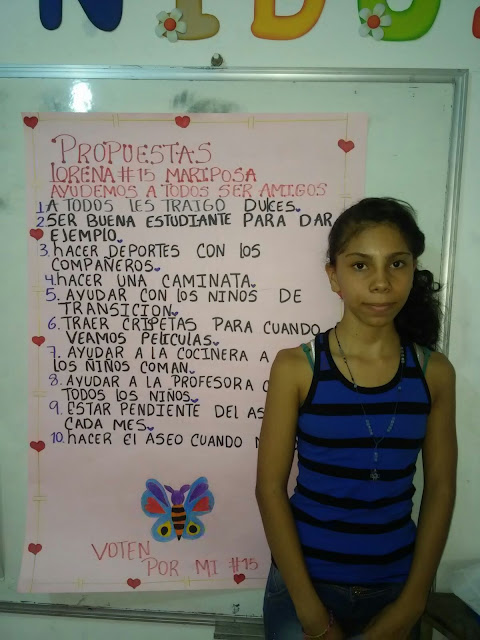 NIDO
PROPUESTAS
LORENA #15 MARIPOSA
AYUDEMOS A TODOS SER AMIGOS
1. A TODOS LES TRAIGO DULCES.
2. SER BUENA ESTUDIANTE PARA DAR
EJEMPLO.
3. HACER DEPORTES CON LOS
COMPAÑEROS.
4. HACER UNA CAMINATA.
5. AYUDAR CON LOS NIÑOS DE
TRANSICION.
6. TRAER CRIPETAS PARA CUANDO
VEAMOS PELICULAS.
7. AYUDAR A LA COCINERA A
LOS NIÑOS COMAN.
8. AYUDAR A LA PROFESORA
TODOS LOS NIÑOS.
9. ESTAR PENDIENTE DEL AS
CADA MES.
10. HACER EL ASEO CUANDO
VOTEN
POR MI #15